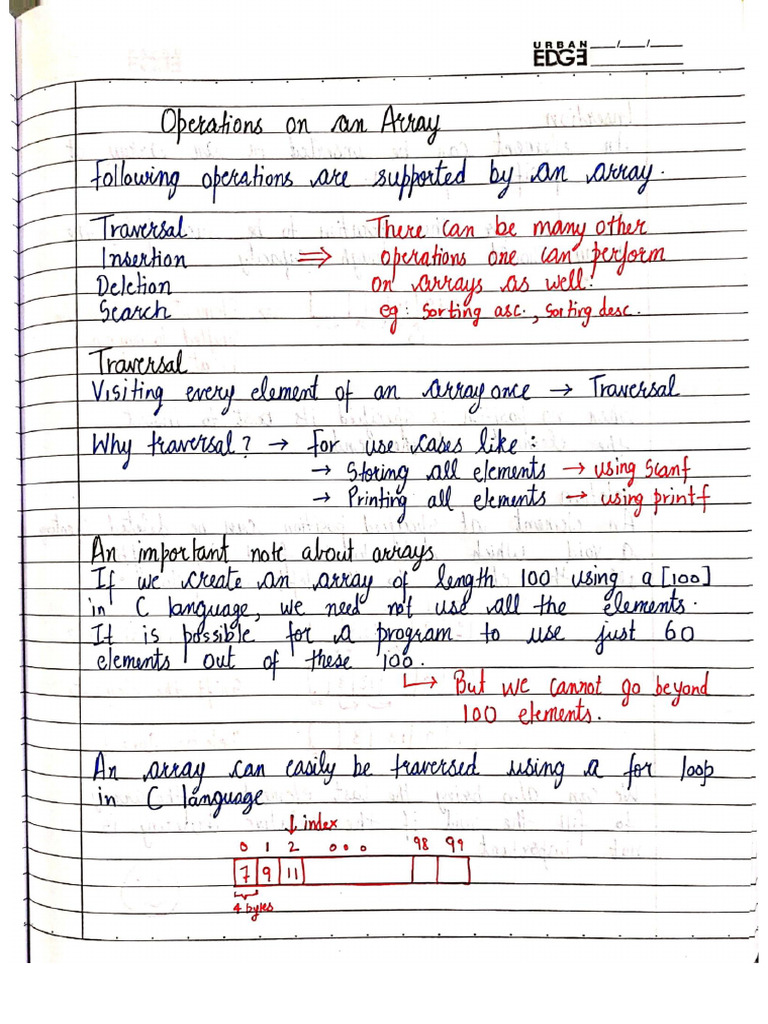 URBAN
EDGE __/__/__
Operations on an Array
Following operations are supported by an array.
Traversal
Insertion
Deletion
Search
⇒ There can be many other
operations one can perform
on arrays as well!
eg: Sorting asc., Sorting desc.
Traversal
Visiting every element of an array once → Traversal
Why traversal? → For use cases like:
→ Storing all elements → using Scanf
→ Printing all elements → using printf
An important note about arrays
If we create an array of length 100 using a [100]
in C language, we need not use all the elements.
It is possible for a program to use just 60
elements out of these 100.
↳ But we cannot go beyond
100 elements.
An array can easily be traversed using a for loop
in C language
↓ index
0 1 2 ooo 98 99
7 9 11
4 bytes